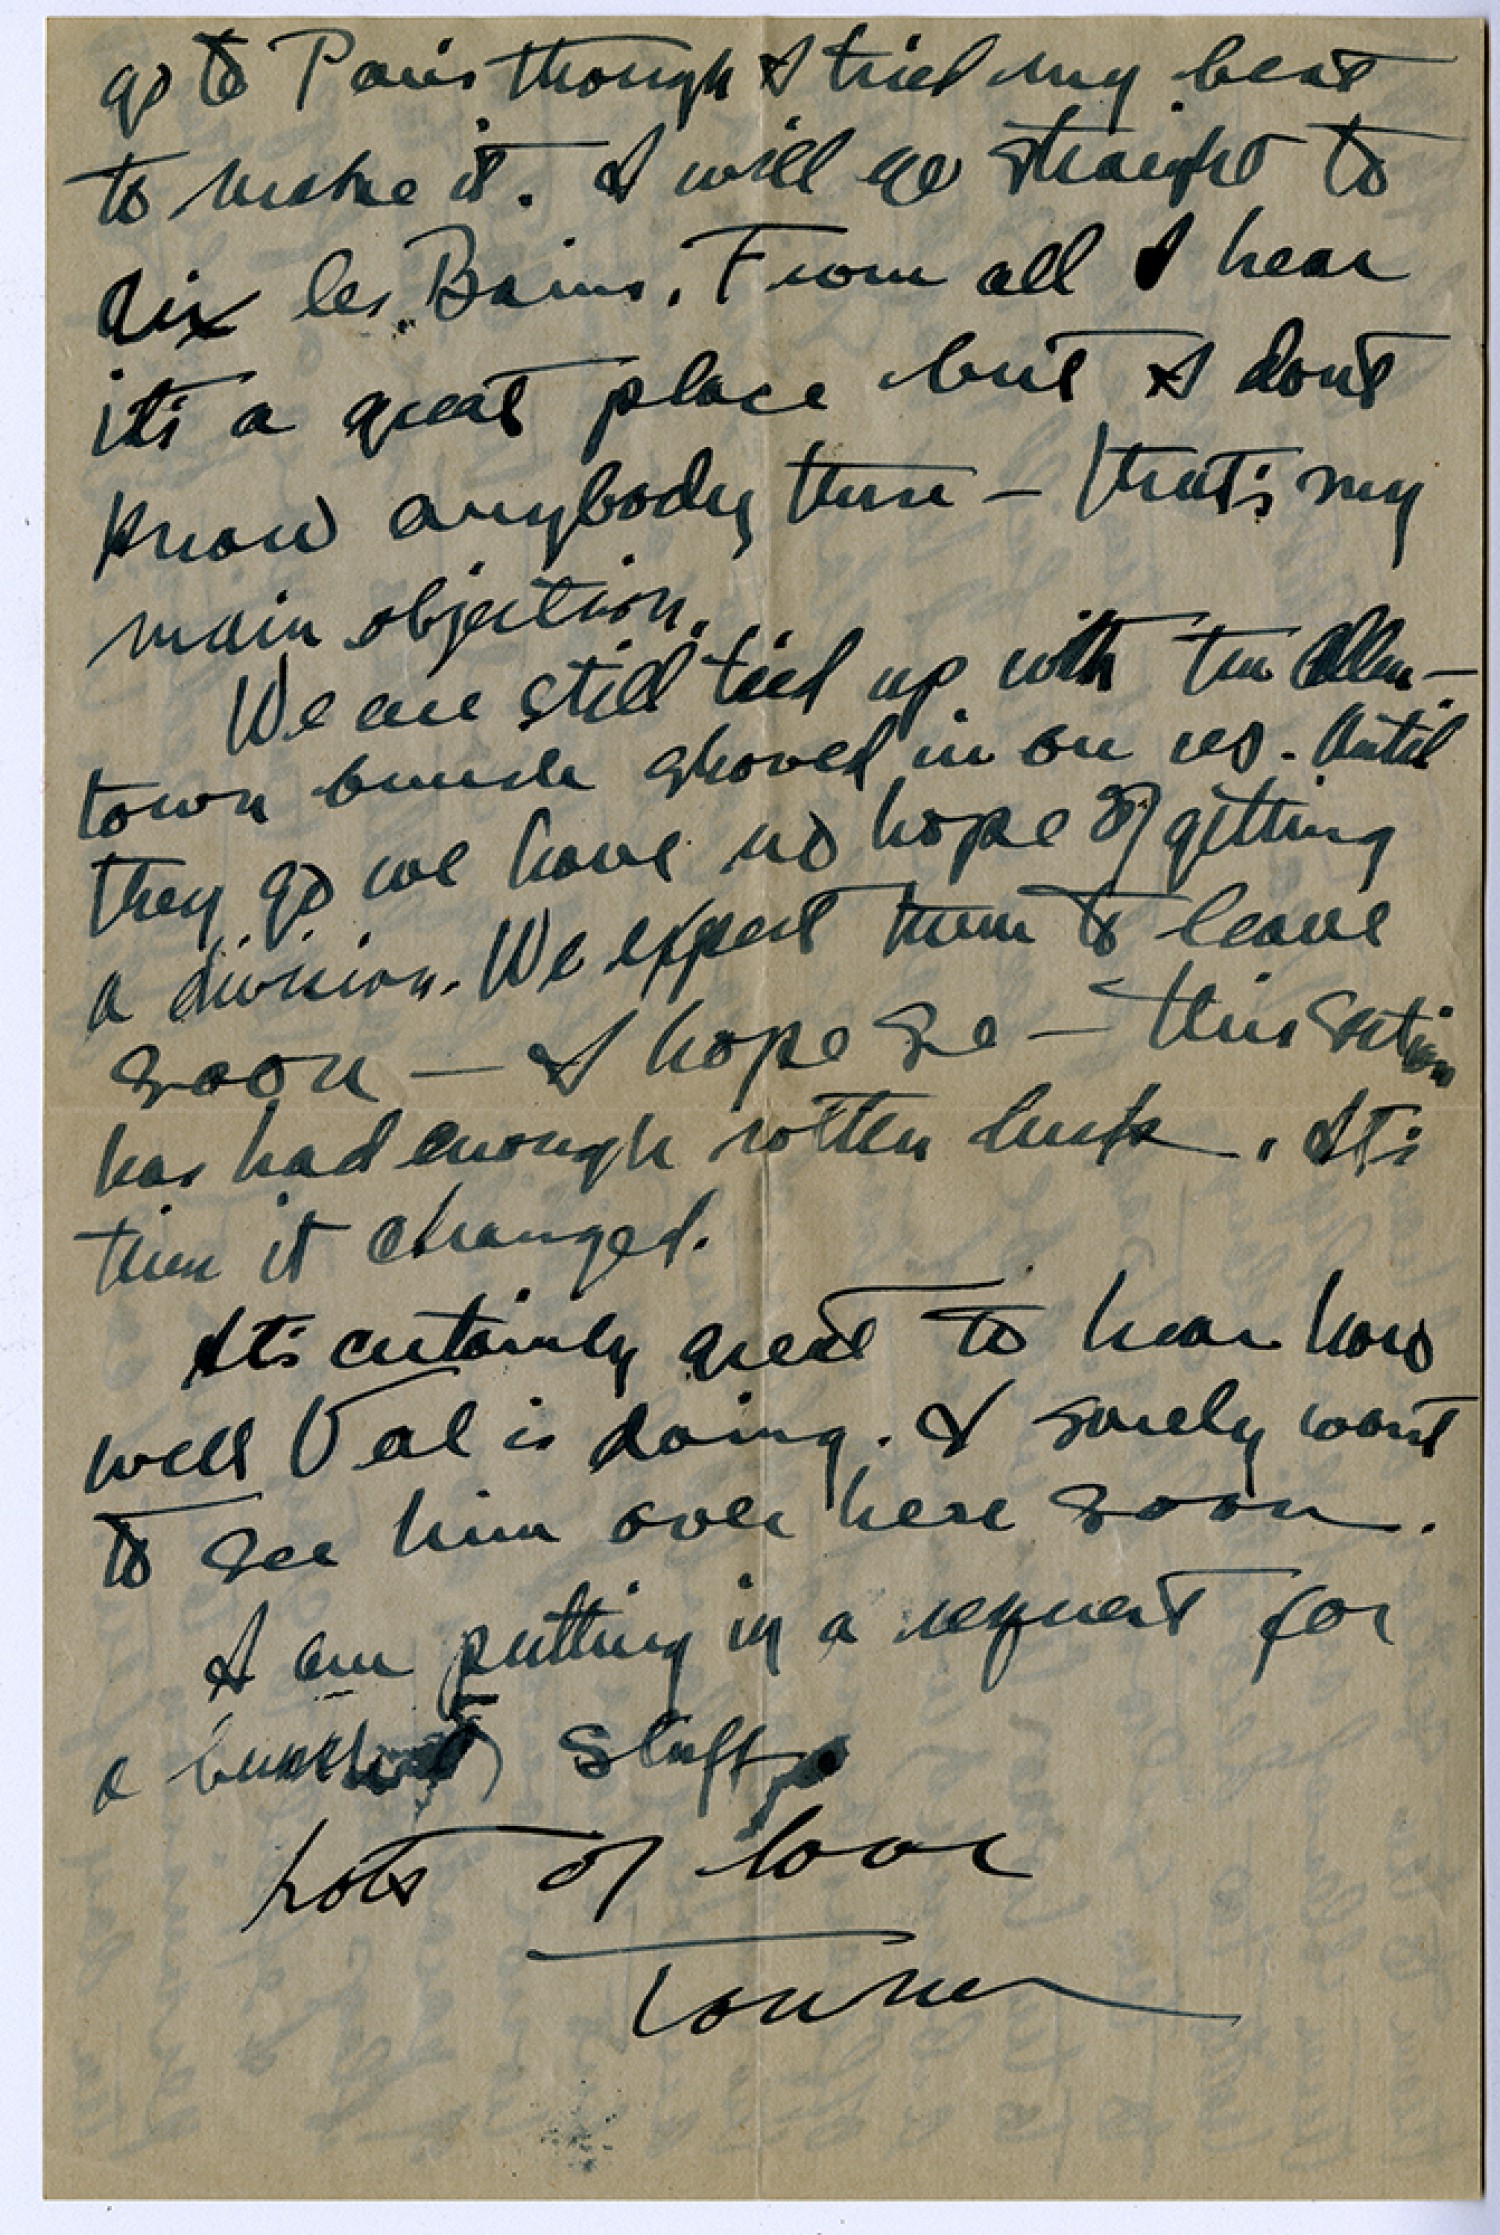 go to Paris though I tried my best
to make it. I will go straight to
Aix les Bains. From all I hear
it's a great place but I dont
know anybody there — that's my
main objection.
We are still tied up with the Allen-
town bunch shoved in on us. Until
they go we have no hope of getting
a division. We expect them to leave
soon — I hope so — this section
has had enough rotten luck. It's
time it changed.
It's certainly great to hear how
well Val is doing. I surely want
to see him over here soon.
I am putting in a request for
a bunch of stuff.
Lots of love